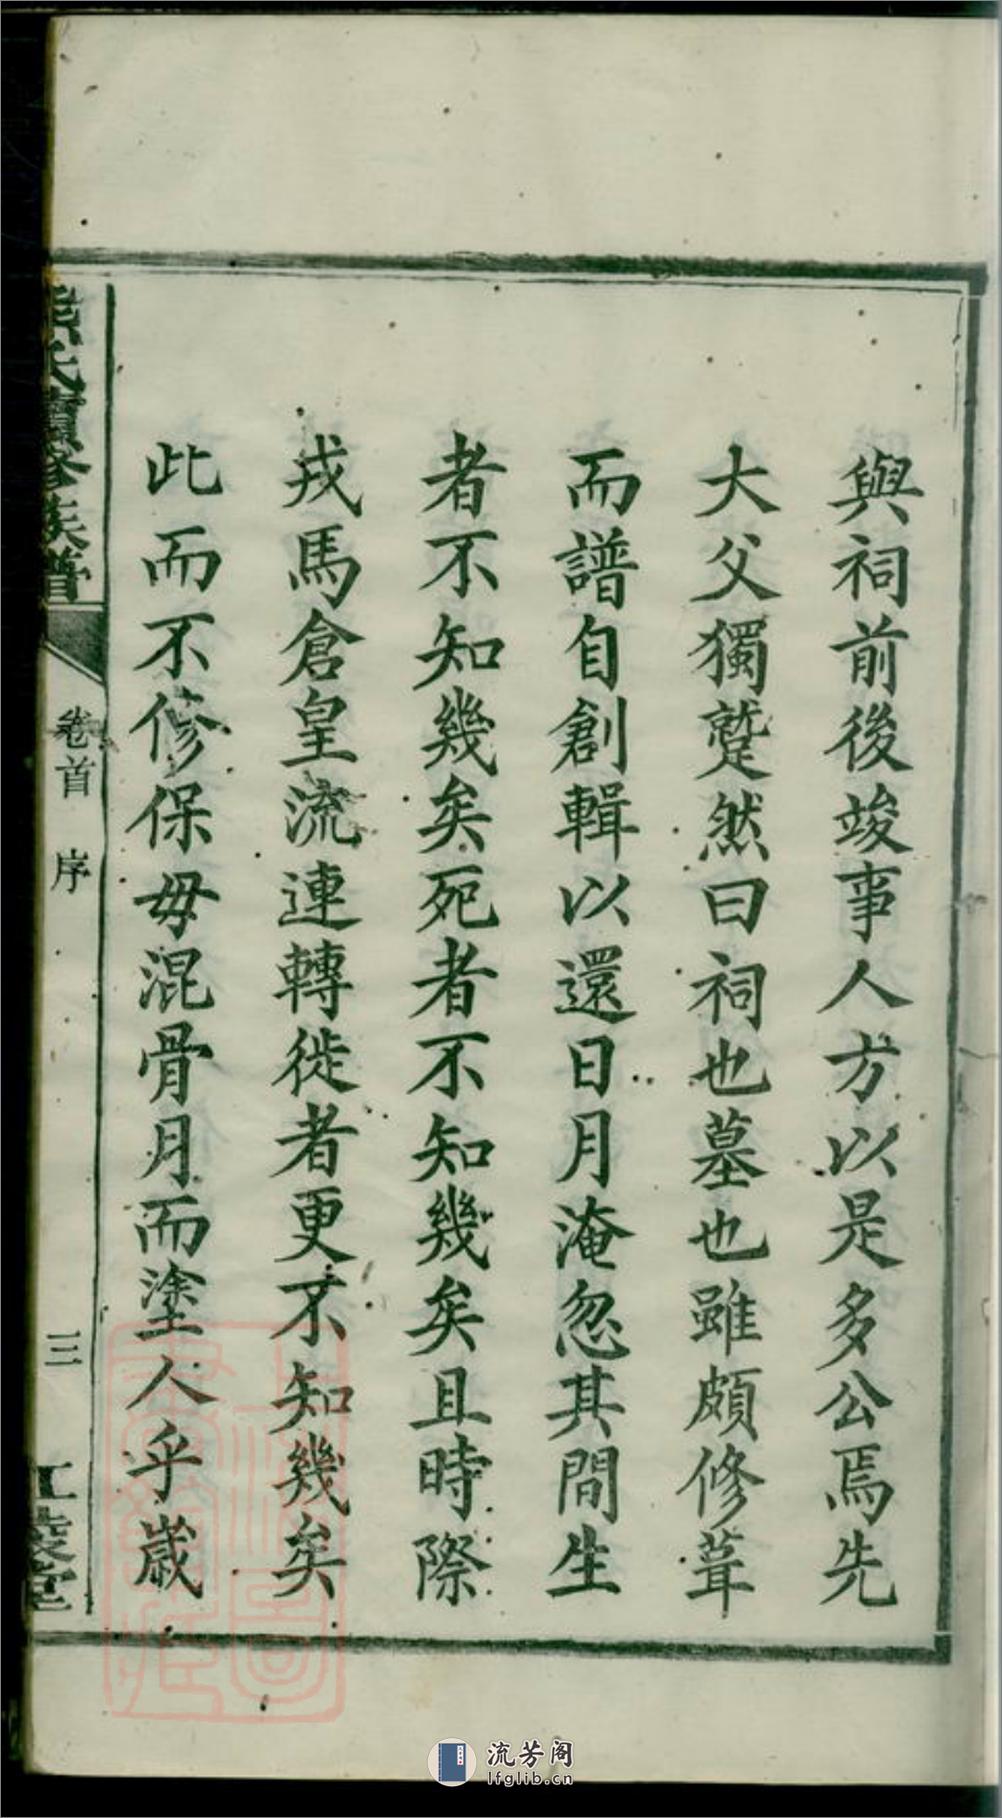 與祠前後竣事人方以是多公焉先
大父獨蹵然曰祠也墓也雖頗修葺
而譜自創輯以還日月淹忽其間生
者不知幾矣死者不知幾矣且時際
戎馬倉皇流連轉徙者更不知幾矣
此而不修保毋混骨月而塗人乎歲
熊氏續修族譜
卷首 序
三
江陵堂
流芳阁
lfglib.cn